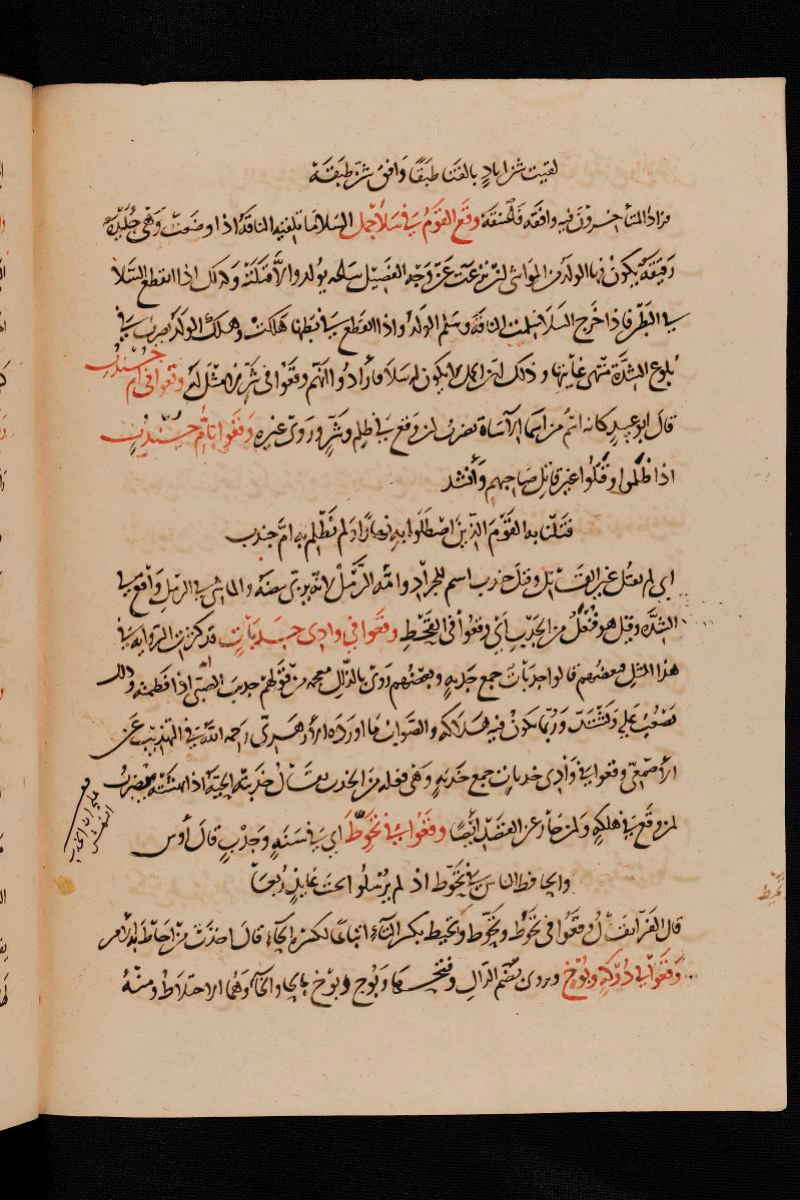 لقيت شن اياد بالقنا طبقا وافق شن طبقة
فزاد المتأخرون فيه وافقه فاعتنقه وقع القوم في سلا جمل السلا ما تلقيه الناقة اذا وضعت وهي جليدة
رقيقة يكون فيها الولد من المواشي ان نزعت عن وجه الفصيل ساعة يولد والا قتلته وكذلك اذا انقطع السلا
في البطن فاذا خرج السلا سلمت الناقة وسلم الولد واذا انقطع في بطنها هلكت وهلك الولد يضرب في
بلوغ الشدة منتهى غايتها وذلك ان الجمل لا يكون له سلا فارادوا انهم وقعوا في شر لا مثل له وقعوا في ام جندب
قال ابو عبيد كانه اسم من اسما الاساة يضرب لمن وقع في ظلم وشر وروى غيره وقعوا بام جندب
اذا ظلموا وقتلوا غير قاتل صاحبهم وأنشد
قتلنا به القوم الذين اصطلوا به نهارا ولم نظلم به ام جندب
اي لم نقتل غير القاتل وقيل جندب اسم للجراد وامه الرمل لانه يربى بيضه والماشي في الرمل واقع في
الشدة وقيل هو فنعل من الجدب اي وقعوا في القحط وقعوا في وادي جدبات قد كثرت الرواية في
هذا المثل فبعضهم قالوا جدبات جمع جدبة وبعضهم روى بالذال معجمة من قولهم جذب الصبي امه اذا فطمته وذلك
يصعب عليه ويشتد وربما يكون فيه هلاكه والصواب ما اورده الازهري رحمه الله في التهذيب عن
الاصمعي وقعوا في وادي خدبات جمع خدبة وهي فعلة من الخدب يقال خدبته الحية اذا نهشته يضرب
لمن وقع في هلكة ولمن جار عن القصد ايضا وقعوا في تحوط اي في سنة وجدب قال أوس
والحافظ الناس في تحوط اذ لم يرسلوا تحت عايذ ربعا
قال الفرا يقال وقعوا في تحوط وتحوط وتحيط بكسر التاء اتباعا لكسرة الحاء قال اخذت من احاط به الامر
وقعوا في دوكة وبوخ ويروى بضم الدال وفتحها وبوج وبوخ بالحا والخاء وهما الاختلاط ومنه